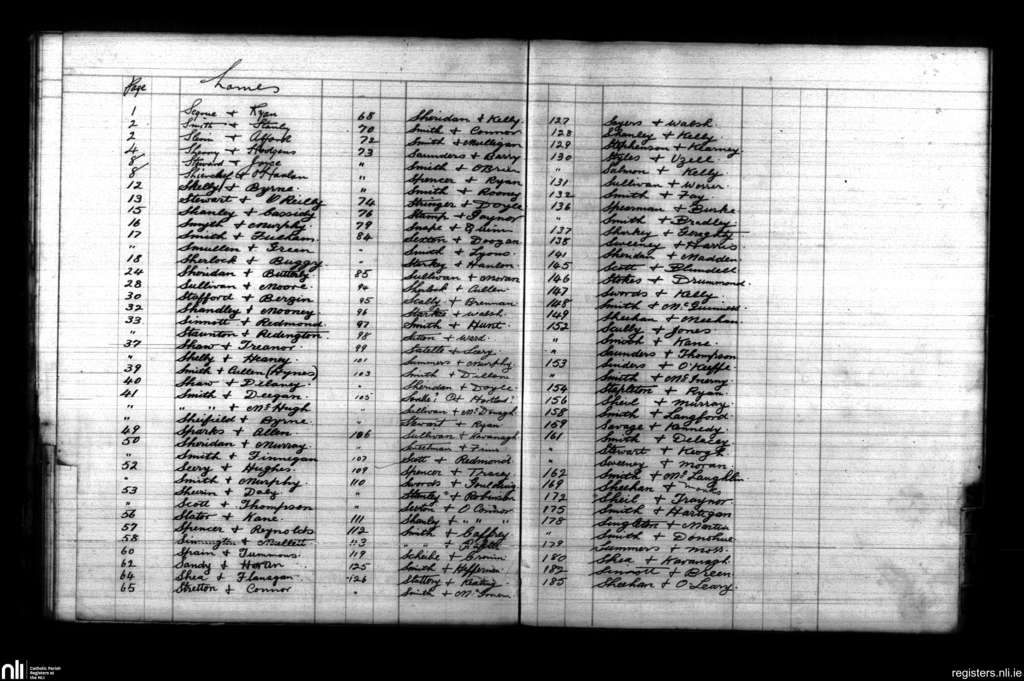 Page
Names
1 Segrue + Ryan
2 Smith + Stanly
2 + Afford
4 + Hodgens
8 Steward + Joyce
8 + O'Hanlon
12 Shelly + Byrne
13 Stewart + O'Reilly
15 Shanley + Cassidy
16 Smyth + Murphy
17 Smith + Feeham
" Smullen + Green
18 Sherlock + Buggy
24 Sheridan + Butterly
28 Sullivan + Moore
30 Stafford + Bergin
32 Shandley + Mooney
33 Sinnott + Redmond
" Staunton + Redington
37 Shaw + Treanor
" Shelly + Heaney
39 Smith + Cullen (Hynes)
40 Shaw + Delaney
41 Smith + Deegan
" " + McHugh
" Sheifield + Byrne
49 Sparks + Allen
50 Sheridan + Murray
" Smith + Finnegan
52 Seery + Hughes
" Smith + Murphy
53 Sherin + Daly
" Scott + Thompson
56 Slator + Kane
57 Spencer + Reynolds
58 Sinnington + Mullett
60 Spain + Timmons
62 Sandy + Horan
64 Shea + Flanagan
65 Stretton + Connor
68 Sheridan + Kelly
70 Smith + Connor
72 Smith + Mulligan
73 Saunders + Barry
" Smith + O'Brien
" Spencer + Ryan
" Smith + Rooney
74 Stringer + Doyle
76 Stamp + Gaynor
79 Snape + Quinn
84 Sexton + Doogan
" Smith + Lyons
" Starkey + Hanlon
85 Sullivan + Moran
94 + Cullen
95 Scally + Brennan
96 Starkes + Walsh
97 Smith + Hunt
98 Seton + Ward
99 + Leary
101 Summers + Murphy
103 Smith + Dillon
" Sheridan + Doyle
105
" Sullivan + McDonagh
" Stewart + Ryan
106 Sullivan + Kavanagh
"
107 Scott + Redmond
109 Spencer + Tracey
110 Swords + Goulding
" Stanley + Robinson
" Sexton + O'Connor
111 Shanly + " "
112 Smith + Caffrey
113 " "
119 Scheibe + Cronin
125 Smith + Heffernan
126 Slattery + Keating
" Smith + McGovern
127 Sayers + Walsh
128 Stanley + Kelly
129 Stephenson + Kearney
130 Styles + Uzell
" Salmon + Kelly
131 Sullivan + Weir
132 Smith + Fay
136 Spearman + Burke
" Smith + Bradley
137 Sharkey + Geraghty
138 Sweeney + Harris
141 Sheridan + Madden
145 Scott + Blundell
146 Stokes + Drummond
147 Swords + Kelly
148 Smith + McGuinness
149 Sheehan + Meehan
152 Scully + Jones
" Smith + Kane
" Saunders + Thompson
153 Sinders + O'Keeffe
" Smith + McInerny
154 Stapleton + Ryan
156 Sheil + Murray
158 Smith + Langford
159 Savage + Kennedy
161 Smith + Delaney
" Stewart + Keogh
" Sweeney + Moran
162 Smith + McLaughlin
169 Sheehan +
172 Sheil + Traynor
175 Smith + Hartigan
178 Singleton + Martin
" Smith + Donohue
179 Summers + Moss
180 Shea + Kavanagh
182 Sinnott + Breen
185 Sheehan + O'Leary
nli
Catholic Parish
Registers at
the NLI
registers.nli.ie